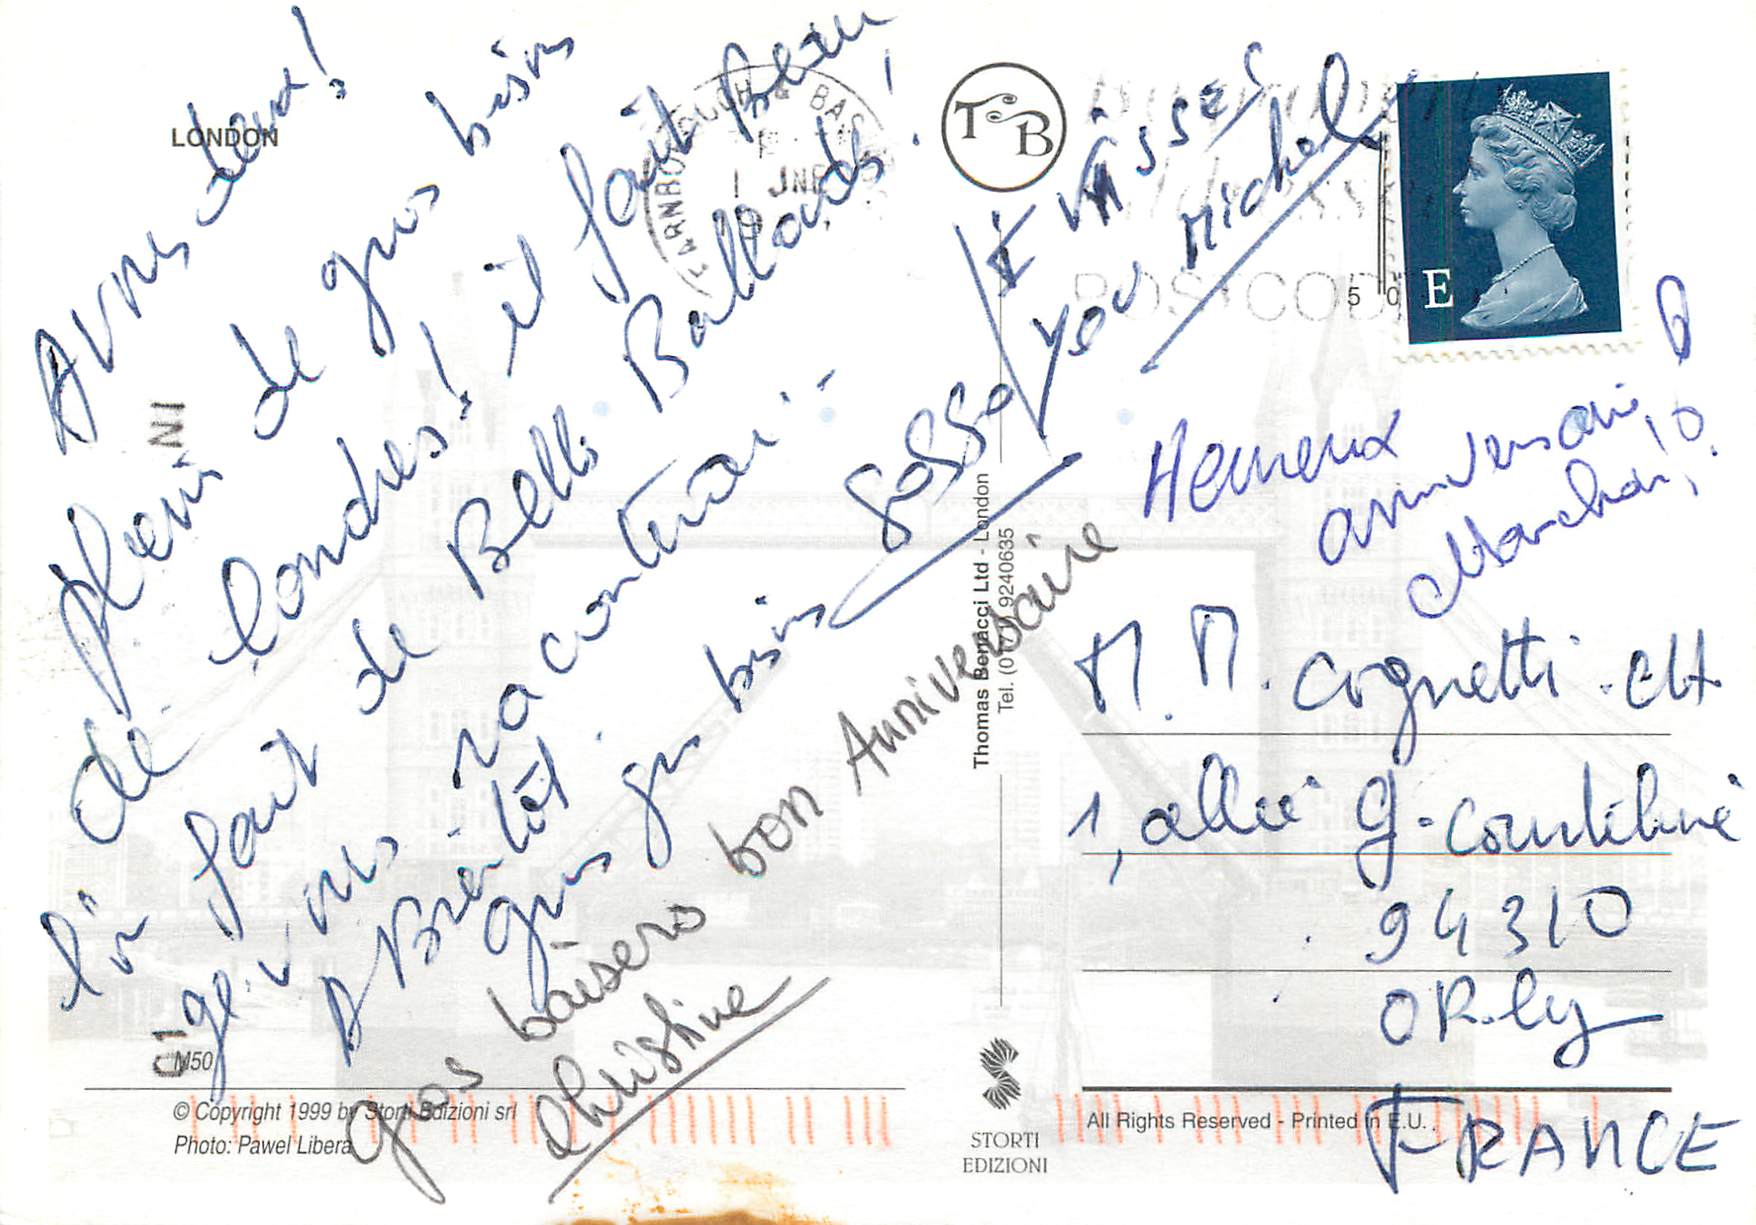 LONDON
A vous deux!
plein de gros bisous
de Londres! il fait beau
l'on fait de Belles Ballades!
je vous raconterai -
A Bientôt.
gros gros bisous
Sosso
Gros baisers bon Anniversaire
Christine
KISSES
you Michel
T B
FARNBOROUGH
1 JNE
POSTCODE
E
50
Heureux
anniversaire
M. M. Cognetti
1, allée G. Courteline
94310
ORly
FRANCE
Thomas Benacci Ltd - London
Tel. (0171) 9240635
M50
© Copyright 1999 by Storti Edizioni srl
Photo: Pawel Libera
STORTI
EDIZIONI
All Rights Reserved - Printed in E.U.